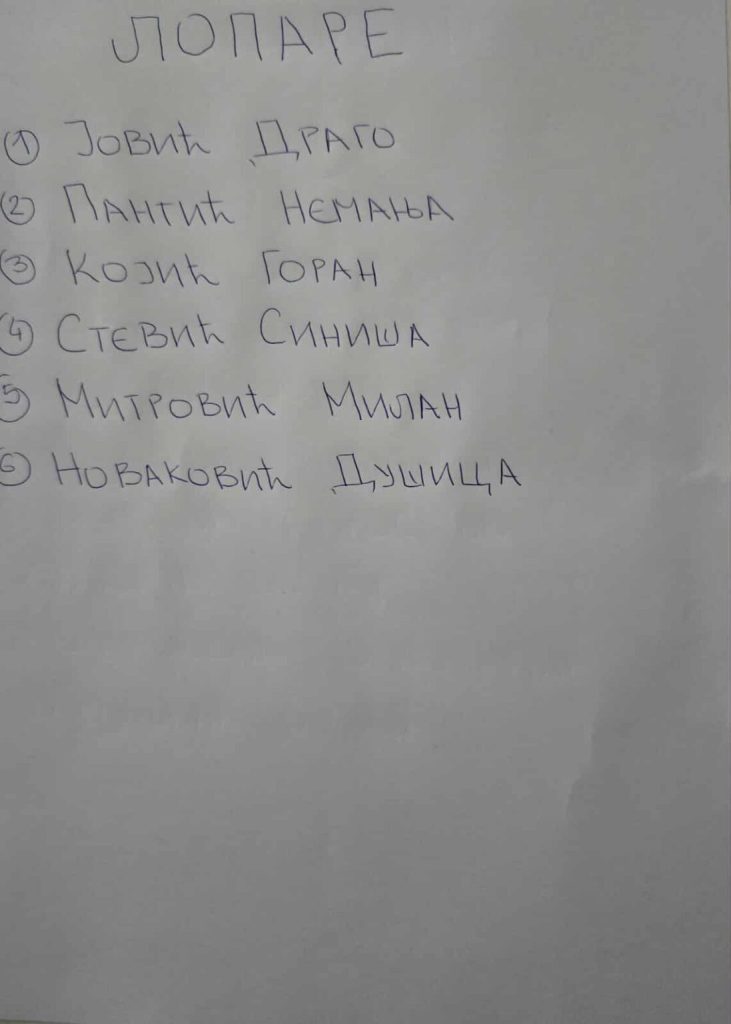 ЛОПАРЕ
① Јовић Драго
② Пантић Немања
③ Којић Горан
④ Стевић Синиша
⑤ Митровић Милан
⑥ Новаковић Душица